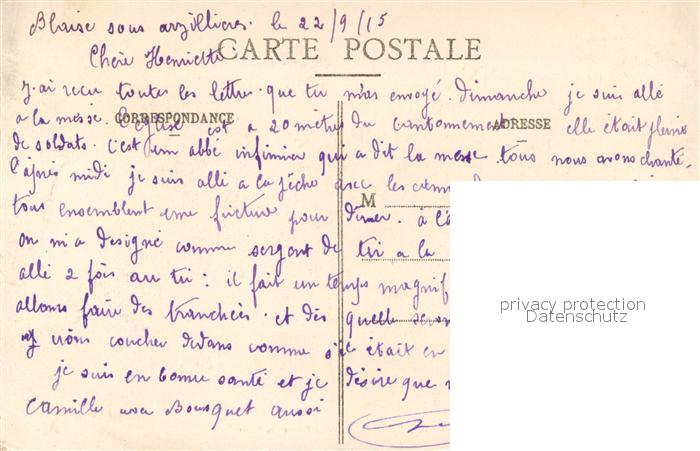 Blaise sous arzillieres. le 22/9/15
Chère Henriette
CARTE POSTALE
J. ai recu toutes les lettres. que tu m'as envoyé. dimanche je suis allé
CORRESPONDANCE
ADRESSE
a la messe. l'eglise est a 20 mètres du cantonnement elle était pleine
de soldats. c'est un abbé infirmier qui a dit la messe tous nous avons chanté.
l'après midi je suis allé a la pêche avec les
M
tous ensemblent une friture pour diner. à
on m'a designé comme sergent de tir a la
allé 2 fois au tir: il fait un temps magnif
allons faire des tranchées. et dès quelle seron
vons coucher dedans comme s'ie était en
je suis en bonne santé et je désire que
Camille Bousquet aussi
privacy protection
Datenschutz